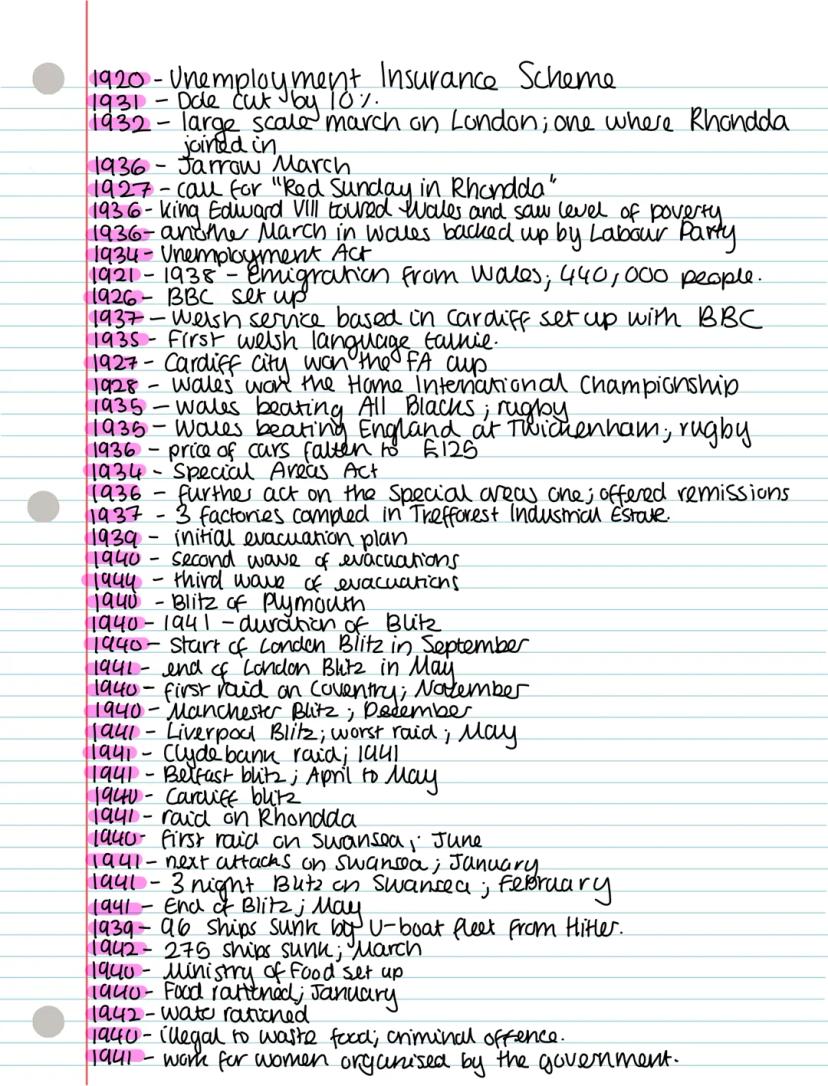 1920 - Unemployment Insurance Scheme
1931 - Dole cut by 10%.
1932 - large scale march on London; one where Rhondda
joined in
1936 - Jarrow March
1927 - call for "Red Sunday in Rhondda"
1936 - King Edward VIII toured Wales and saw level of poverty
1936 - another March in Wales backed up by Labour Party
1934 - Unemployment Act
1921 - 1938 - Emigration from Wales; 440,000 people.
1926 - BBC set up
1937 - Welsh service based in Cardiff set up with BBC
1935 - First welsh language talkie.
1927 - Cardiff City won the FA cup
1928 - Wales won the Home International Championship
1935 - Wales beating All Blacks; rugby
1935 - Wales beating England at Twickenham; rugby
1936 - price of cars fallen to £125
1934 - Special Areas Act
1936 - further act on the special areas one; offered remissions
1937 - 3 factories compled in Trefforest Industrial Estate.
1939 - initial evacuation plan
1940 - second wave of evacuations
1944 - third wave of evacuations
1940 - Blitz of Plymouth
1940 - 1941 - duration of Blitz
1940 - Start of London Blitz in September
1941 - end of London Blitz in May
1940 - first raid on Coventry; November
1940 - Manchester Blitz; December
1941 - Liverpool Blitz; worst raid; May
1941 - Clydebank raid; 1941
1941 - Belfast blitz; April to May
1940 - Cardiff blitz
1941 - raid on Rhondda
1940 - first raid on Swansea; June
1941 - next attacks on Swansea; January
1941 - 3 night Blitz on Swansea; February
1941 - End of Blitz; May
1939 - 96 ships sunk by U-boat fleet from Hitler.
1942 - 275 ships sunk; March
1940 - Ministry of Food set up
1940 - Food rationed; January
1942 - wate rationed
1940 - illegal to waste food; criminal offence.
1941 - work for women organised by the government.